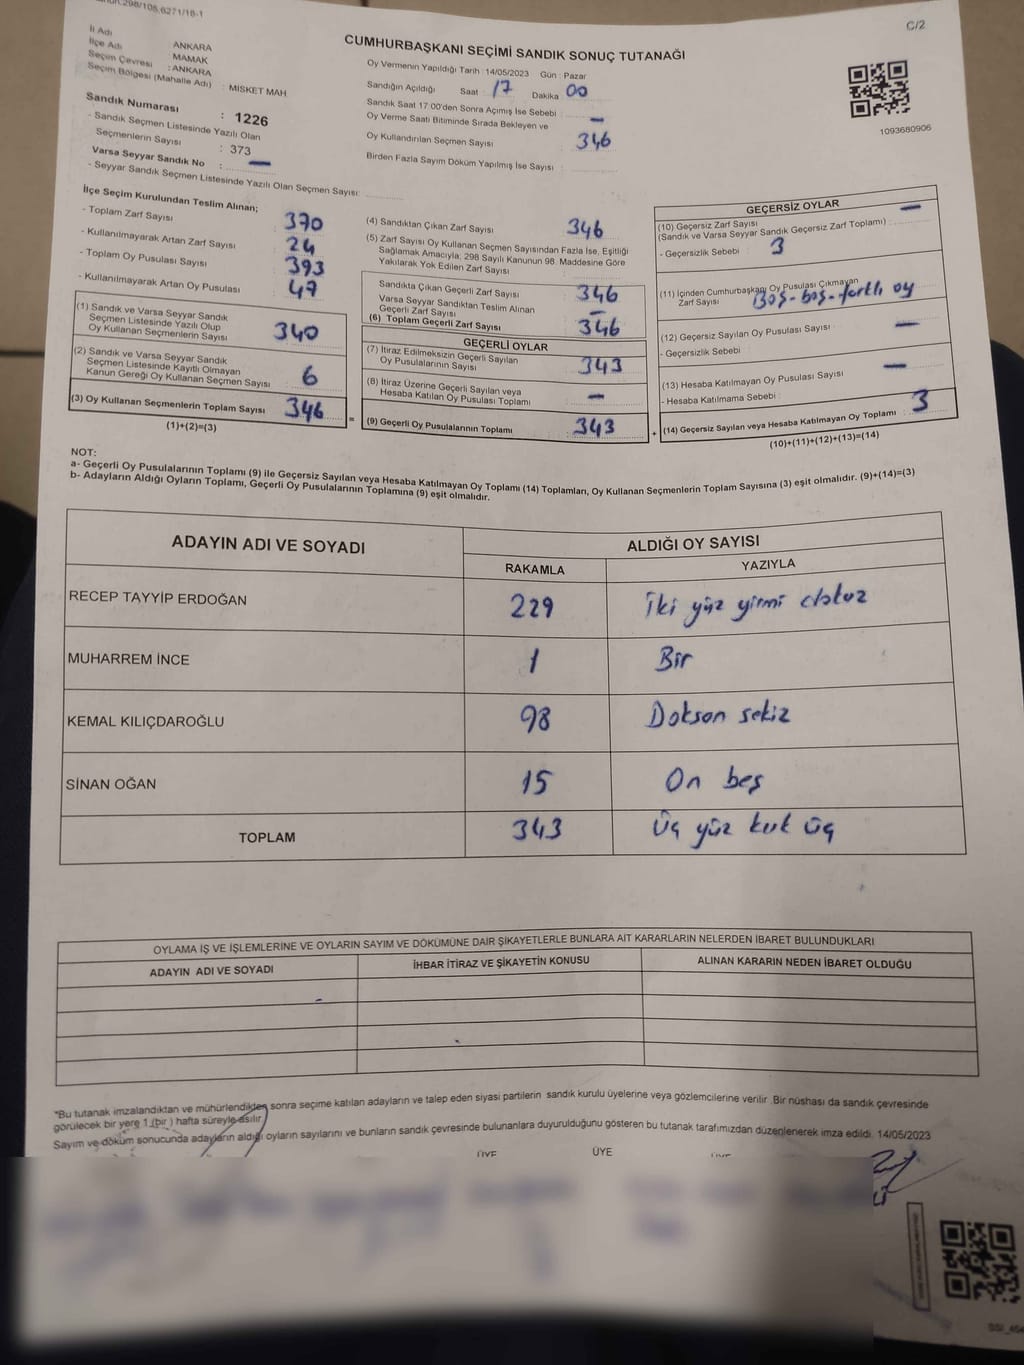 C/2
CUMHURBAŞKANI SEÇİMİ SANDIK SONUÇ TUTANAĞI
İl Adı ANKARA
İlçe Adı MAMAK
Seçim Çevresi : ANKARA
Seçim Bölgesi (Mahalle Adı) : MİSKET MAH.
Oy Vermenin Yapıldığı Tarih :14/05/2023 Gün : Pazar
Sandığın Açıldığı Saat : 17 Dakika : 00
Sandık Saat 17:00'den Sonra Açımış İse Sebebi :
Oy Verme Saati Bitiminde Sırada Bekleyen ve —
Oy Kullandırılan Seçmen Sayısı : 346
Birden Fazla Sayım Döküm Yapılmış İse Sayısı :
1093680906
Sandık Numarası : 1226
- Sandık Seçmen Listesinde Yazılı Olan
Seçmenlerin Sayısı : 373
Varsa Seyyar Sandık No : —
- Seyyar Sandık Seçmen Listesinde Yazılı Olan Seçmen Sayısı:
İlçe Seçim Kurulundan Teslim Alınan;
- Toplam Zarf Sayısı : 370
- Kullanılmayarak Artan Zarf Sayısı : 24
- Toplam Oy Pusulası Sayısı : 393
- Kullanılmayarak Artan Oy Pusulası : 47
(1) Sandık ve Varsa Seyyar Sandık
Seçmen Listesinde Yazılı Olup
Oy Kullanan Seçmenlerin Sayısı : 340
(2) Sandık ve Varsa Seyyar Sandık
Seçmen Listesinde Kayıtlı Olmayan
Kanun Gereği Oy Kullanan Seçmen Sayısı : 6
(3) Oy Kullanan Seçmenlerin Toplam Sayısı : 346
(1)+(2)=(3)
(4) Sandıktan Çıkan Zarf Sayısı : 346
(5) Zarf Sayısı Oy Kullanan Seçmen Sayısından Fazla İse, Eşitliği
Sağlamak Amacıyla; 298 Sayılı Kanunun 98. Maddesine Göre
Yakılarak Yok Edilen Zarf Sayısı :
Sandıkta Çıkan Geçerli Zarf Sayısı : 346
Varsa Seyyar Sandıktan Teslim Alınan
Geçerli Zarf Sayısı : —
(6) Toplam Geçerli Zarf Sayısı : 346
GEÇERLİ OYLAR
(7) İtiraz Edilmeksizin Geçerli Sayılan
Oy Pusulalarının Sayısı : 343
(8) İtiraz Üzerine Geçerli Sayılan veya
Hesaba Katılan Oy Pusulası Toplamı : —
= (9) Geçerli Oy Pusulalarının Toplamı : 343
GEÇERSİZ OYLAR
(10) Geçersiz Zarf Sayısı —
(Sandık ve Varsa Seyyar Sandık Geçersiz Zarf Toplamı) :
- Geçersizlik Sebebi : 3
(11) İçinden Cumhurbaşkanı Oy Pusulası Çıkmayan
Zarf Sayısı Boş-boş-farklı oy
(12) Geçersiz Sayılan Oy Pusulası Sayısı : —
- Geçersizlik Sebebi :
(13) Hesaba Katılmayan Oy Pusulası Sayısı : —
- Hesaba Katılmama Sebebi :
+ (14) Geçersiz Sayılan veya Hesaba Katılmayan Oy Toplamı : 3
(10)+(11)+(12)+(13)=(14)
NOT:
a- Geçerli Oy Pusulalarının Toplamı (9) ile Geçersiz Sayılan veya Hesaba Katılmayan Oy Toplamı (14) Toplamları, Oy Kullanan Seçmenlerin Toplam Sayısına (3) eşit olmalıdır. (9)+(14)=(3)
b- Adayların Aldığı Oyların Toplamı, Geçerli Oy Pusulalarının Toplamına (9) eşit olmalıdır.
ADAYIN ADI VE SOYADI ALDIĞI OY SAYISI
RAKAMLA YAZIYLA
RECEP TAYYİP ERDOĞAN 229 iki yüz yirmi dokuz
MUHARREM İNCE 1 Bir
KEMAL KILIÇDAROĞLU 98 Doksan sekiz
SİNAN OĞAN 15 On beş
TOPLAM 343 üç yüz kırk üç
OYLAMA İŞ VE İŞLEMLERİNE VE OYLARIN SAYIM VE DÖKÜMÜNE DAİR ŞİKAYETLERLE BUNLARA AİT KARARLARIN NELERDEN İBARET BULUNDUKLARI
ADAYIN ADI VE SOYADI İHBAR İTİRAZ VE ŞİKAYETİN KONUSU ALINAN KARARIN NEDEN İBARET OLDUĞU
*Bu tutanak imzalandıktan ve mühürlendikten sonra seçime katılan adayların ve talep eden siyasi partilerin sandık kurulu üyelerine veya gözlemcilerine verilir .Bir nüshası da sandık çevresinde
görülecek bir yere 1 (bir ) hafta süreyle asılır.
Sayım ve döküm sonucunda adayların aldığı oyların sayılarını ve bunların sandık çevresinde bulunanlara duyurulduğunu gösteren bu tutanak tarafımızdan düzenlenerek imza edildi. 14/05/2023
ÜYE ÜYE